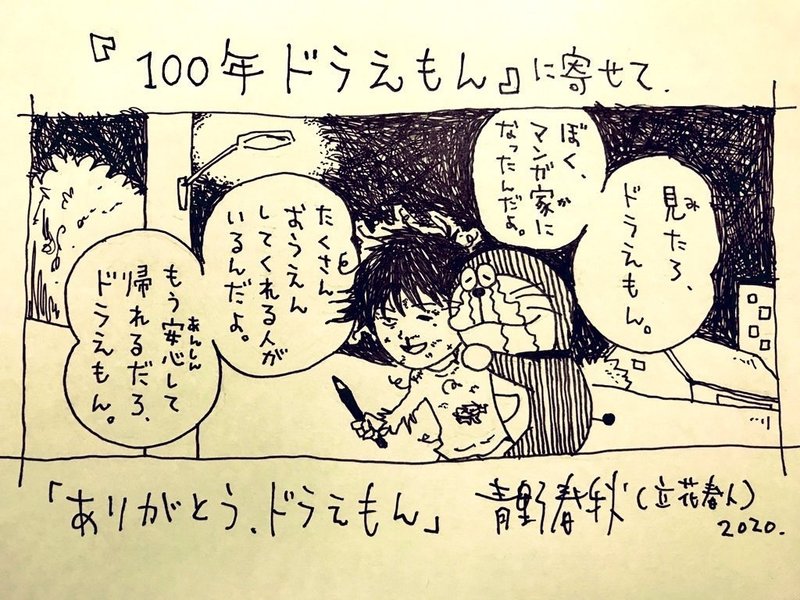 『100年ドラえもん』に寄せて.
見たろ、
ドラえもん。
み
ぼく、
マンガ家に
なったんだよ。
か
たくさん
おうえん
してくれる人が
いるんだよ。
もう安心して
帰れるだろ、
ドラえもん。
あんしん
「ありがとう、ドラえもん」 青野春秋(立花春人)
2020.